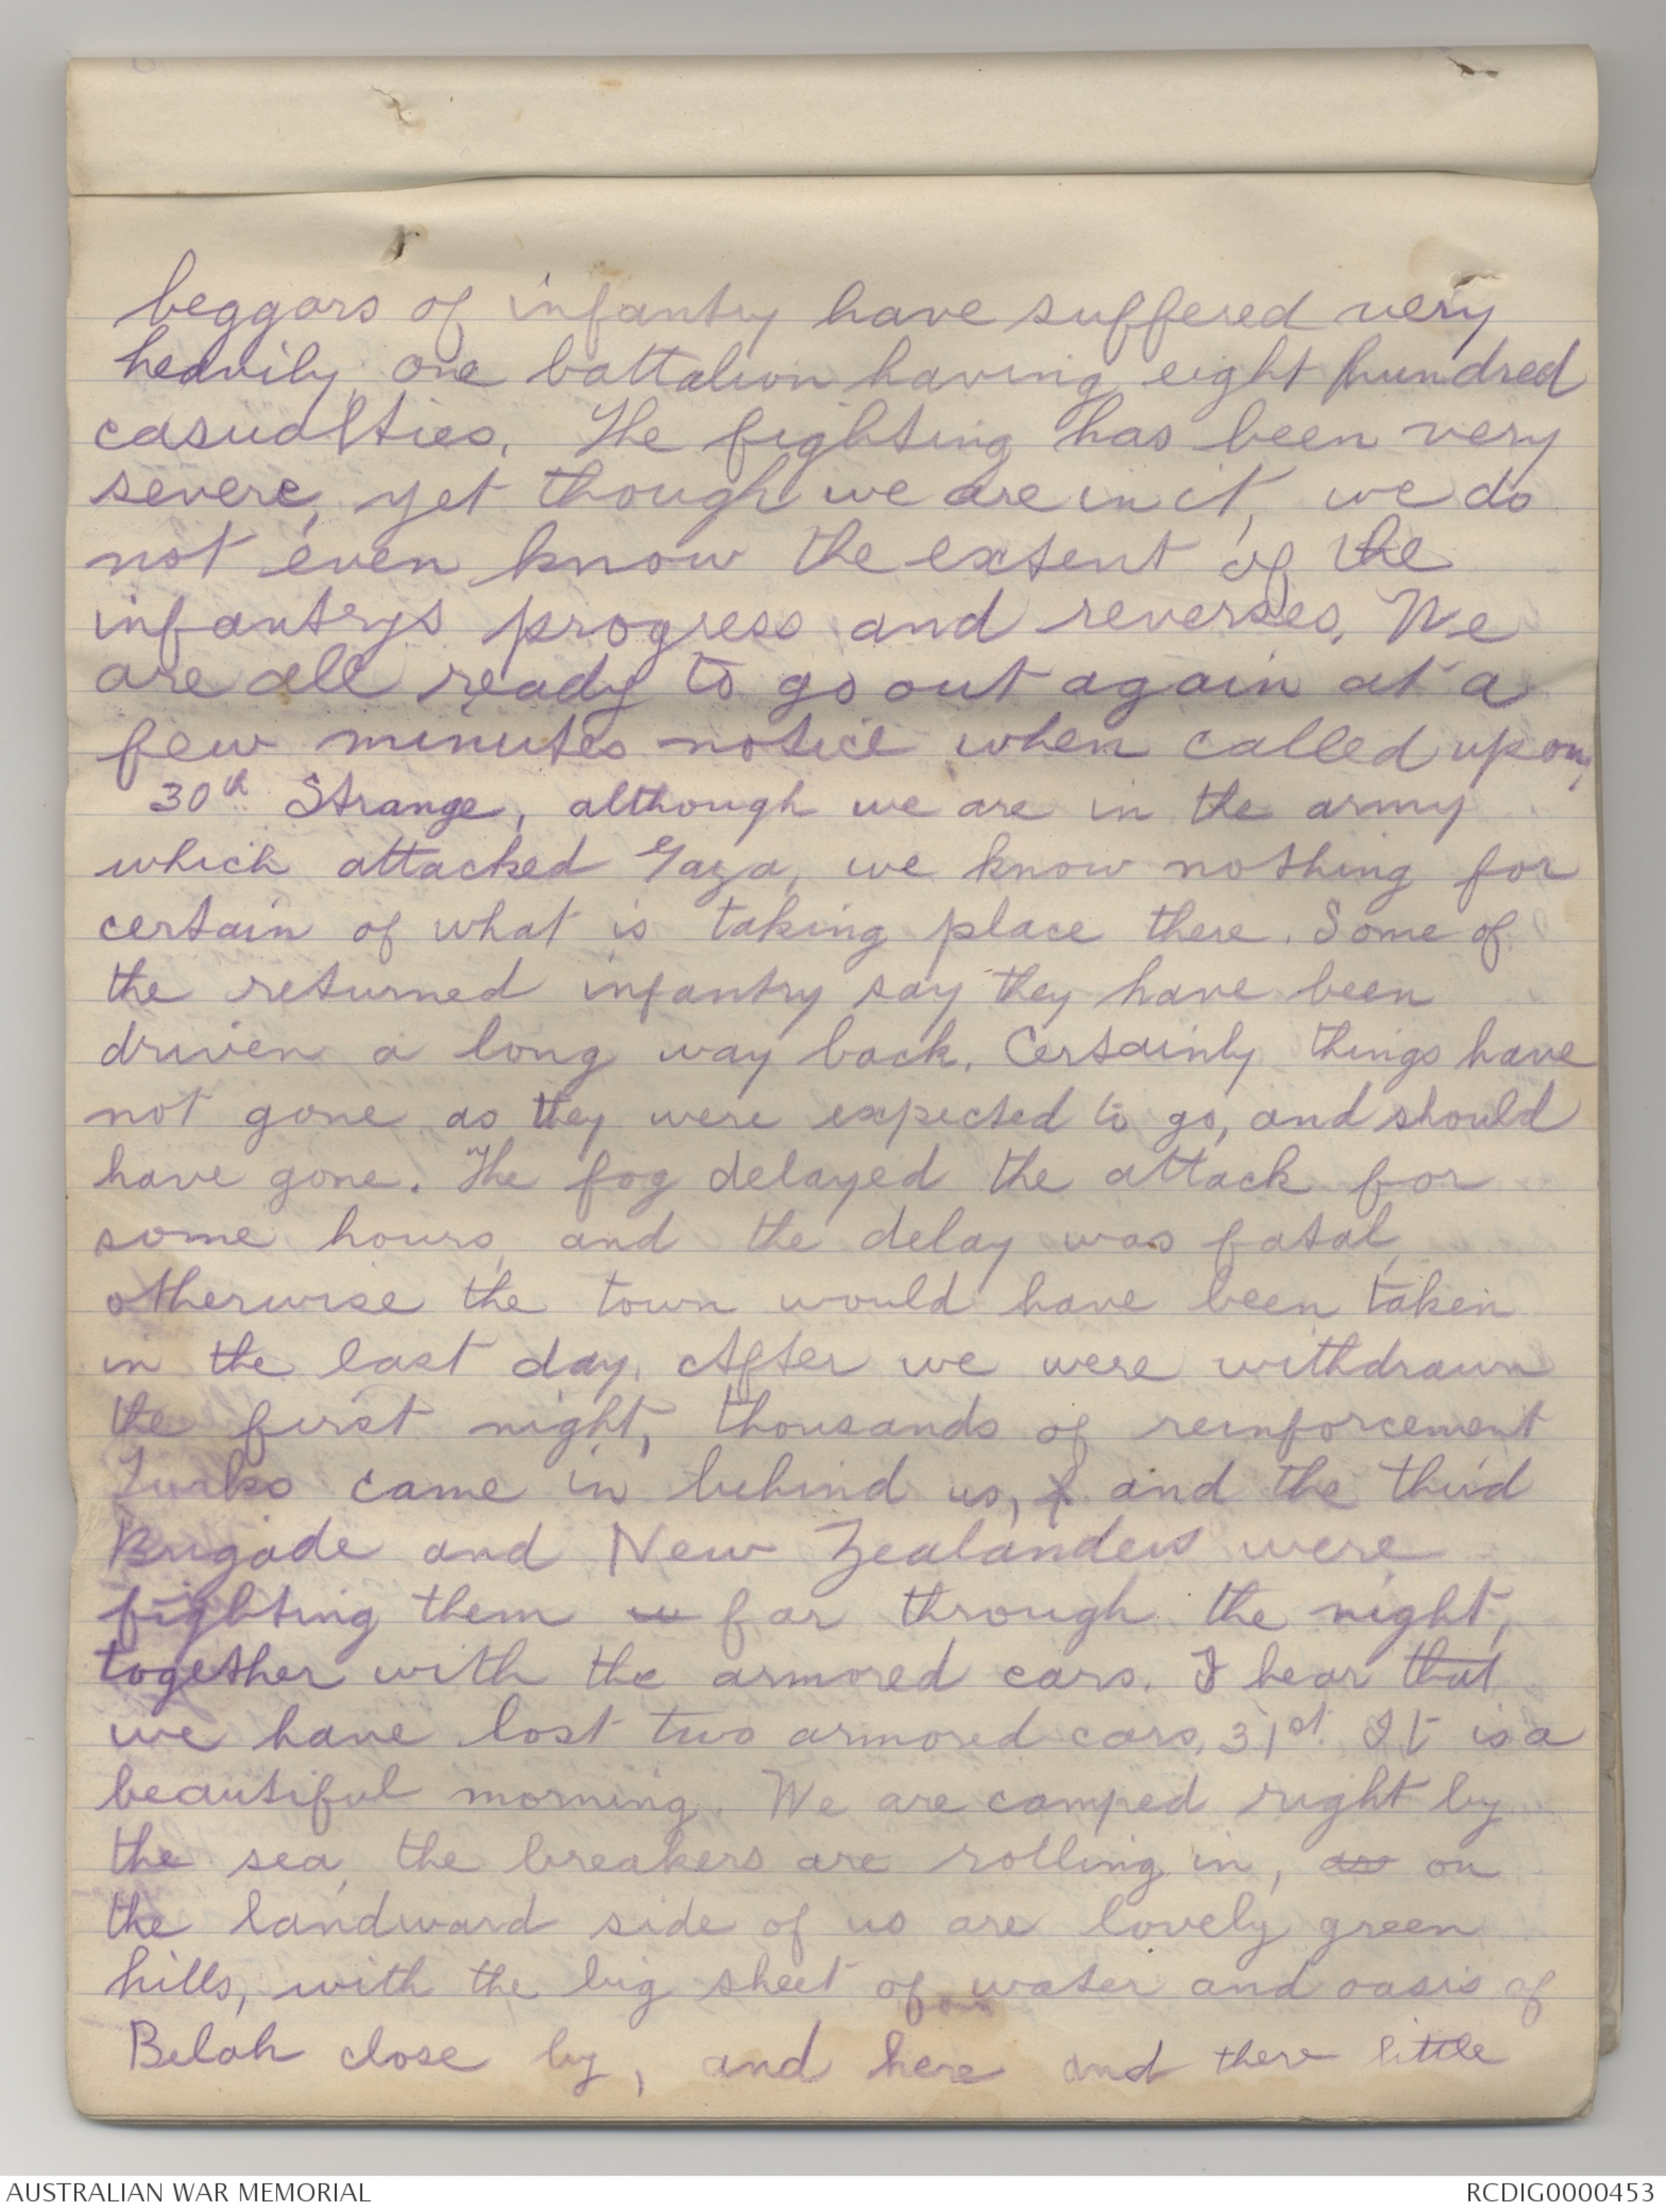 beggars of infantry have suffered very
heavily, one battalion having eight hundred
casualties. The fighting has been very
severe, yet though we are in it, we do
not even know the extent of the
infantrys progress and reverses. We
are all ready to go out again at a
few minutes notice when called upon,
30th Strange, although we are in the army
which attacked Gaza, we know nothing for
certain of what is taking place there. Some of
the returned infantry say they have been
driven a long way back. Certainly things have
not gone as they were expected to go, and should
have gone. The fog delayed the attack for
some hours, and the delay was fatal,
otherwise the town would have been taken
in the last day. After we were withdrawn
the first night, thousands of reinforcement
Turks came in behind us, and the third
Brigade and New Zealanders were
fighting them far through the night,
together with the armored cars. I hear that
we have lost two armored cars, 31st. It is a
beautiful morning. We are camped right by
the sea, the breakers are rolling in, on
the landward side of us are lovely green
hills, with the big sheet of water and oasis of
Belah close by, and here and there little
AUSTRALIAN WAR MEMORIAL
RCDIG0000453